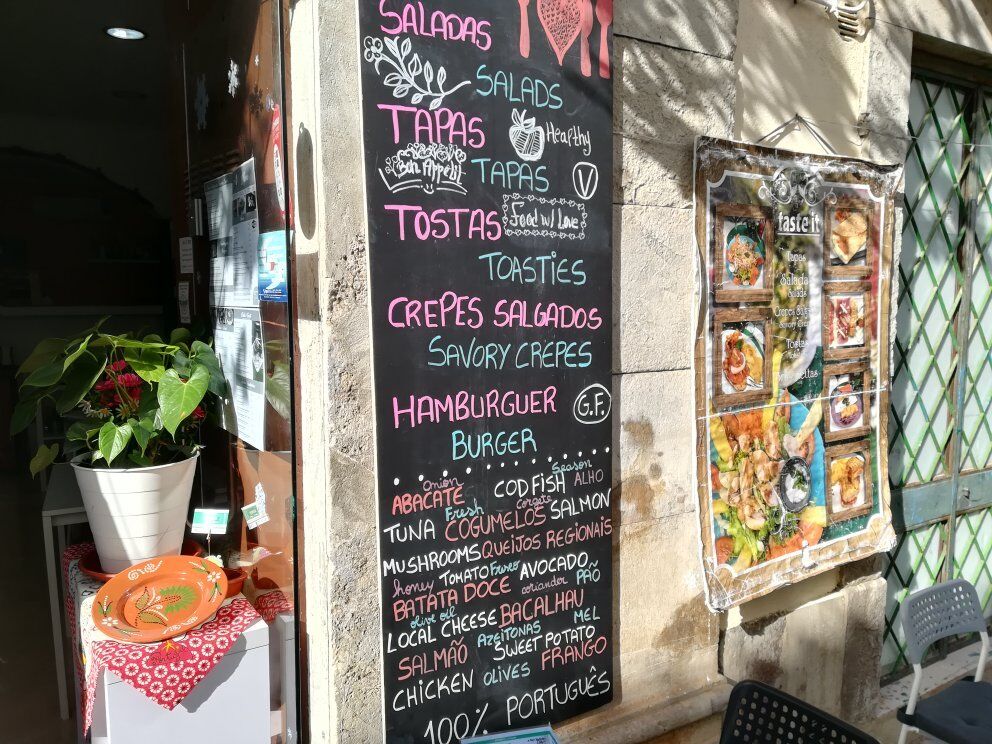 SALADAS
SALADS
TAPAS
Healthy
Bon Appetit
TAPAS
V
TOSTAS
Food w/ Love
TOASTIES
CREPES SALGADOS
SAVORY CREPES
HAMBURGUER
G.F.
BURGER
Onion
Season
ABACATE
CODFISH
ALHO
Fresh
TUNA
COGUMELOS
SALMON
MUSHROOMS
QUEIJOS REGIONAIS
honey
TOMATO
AVOCADO
BATATA DOCE
coriander
PÃO
olive oil
LOCAL CHEESE
BACALHAU
MEL
AZEITONAS
SALMÃO
SWEET POTATO
FRANGO
CHICKEN
OLIVES
100% PORTUGUÊS
taste it
Tapas
Salada
Salads
Tostas